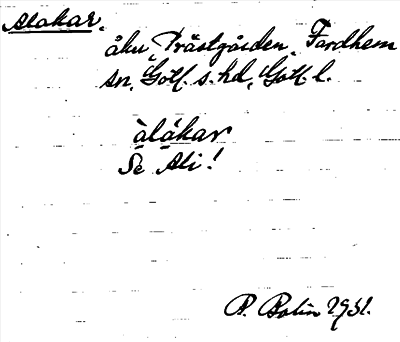 Alakar.
åkrar Prästgården, Fardhem
sn, Gotl. s. hd, Gotl. l.
àlákar
Se Ali!
P. Bolin 1931.